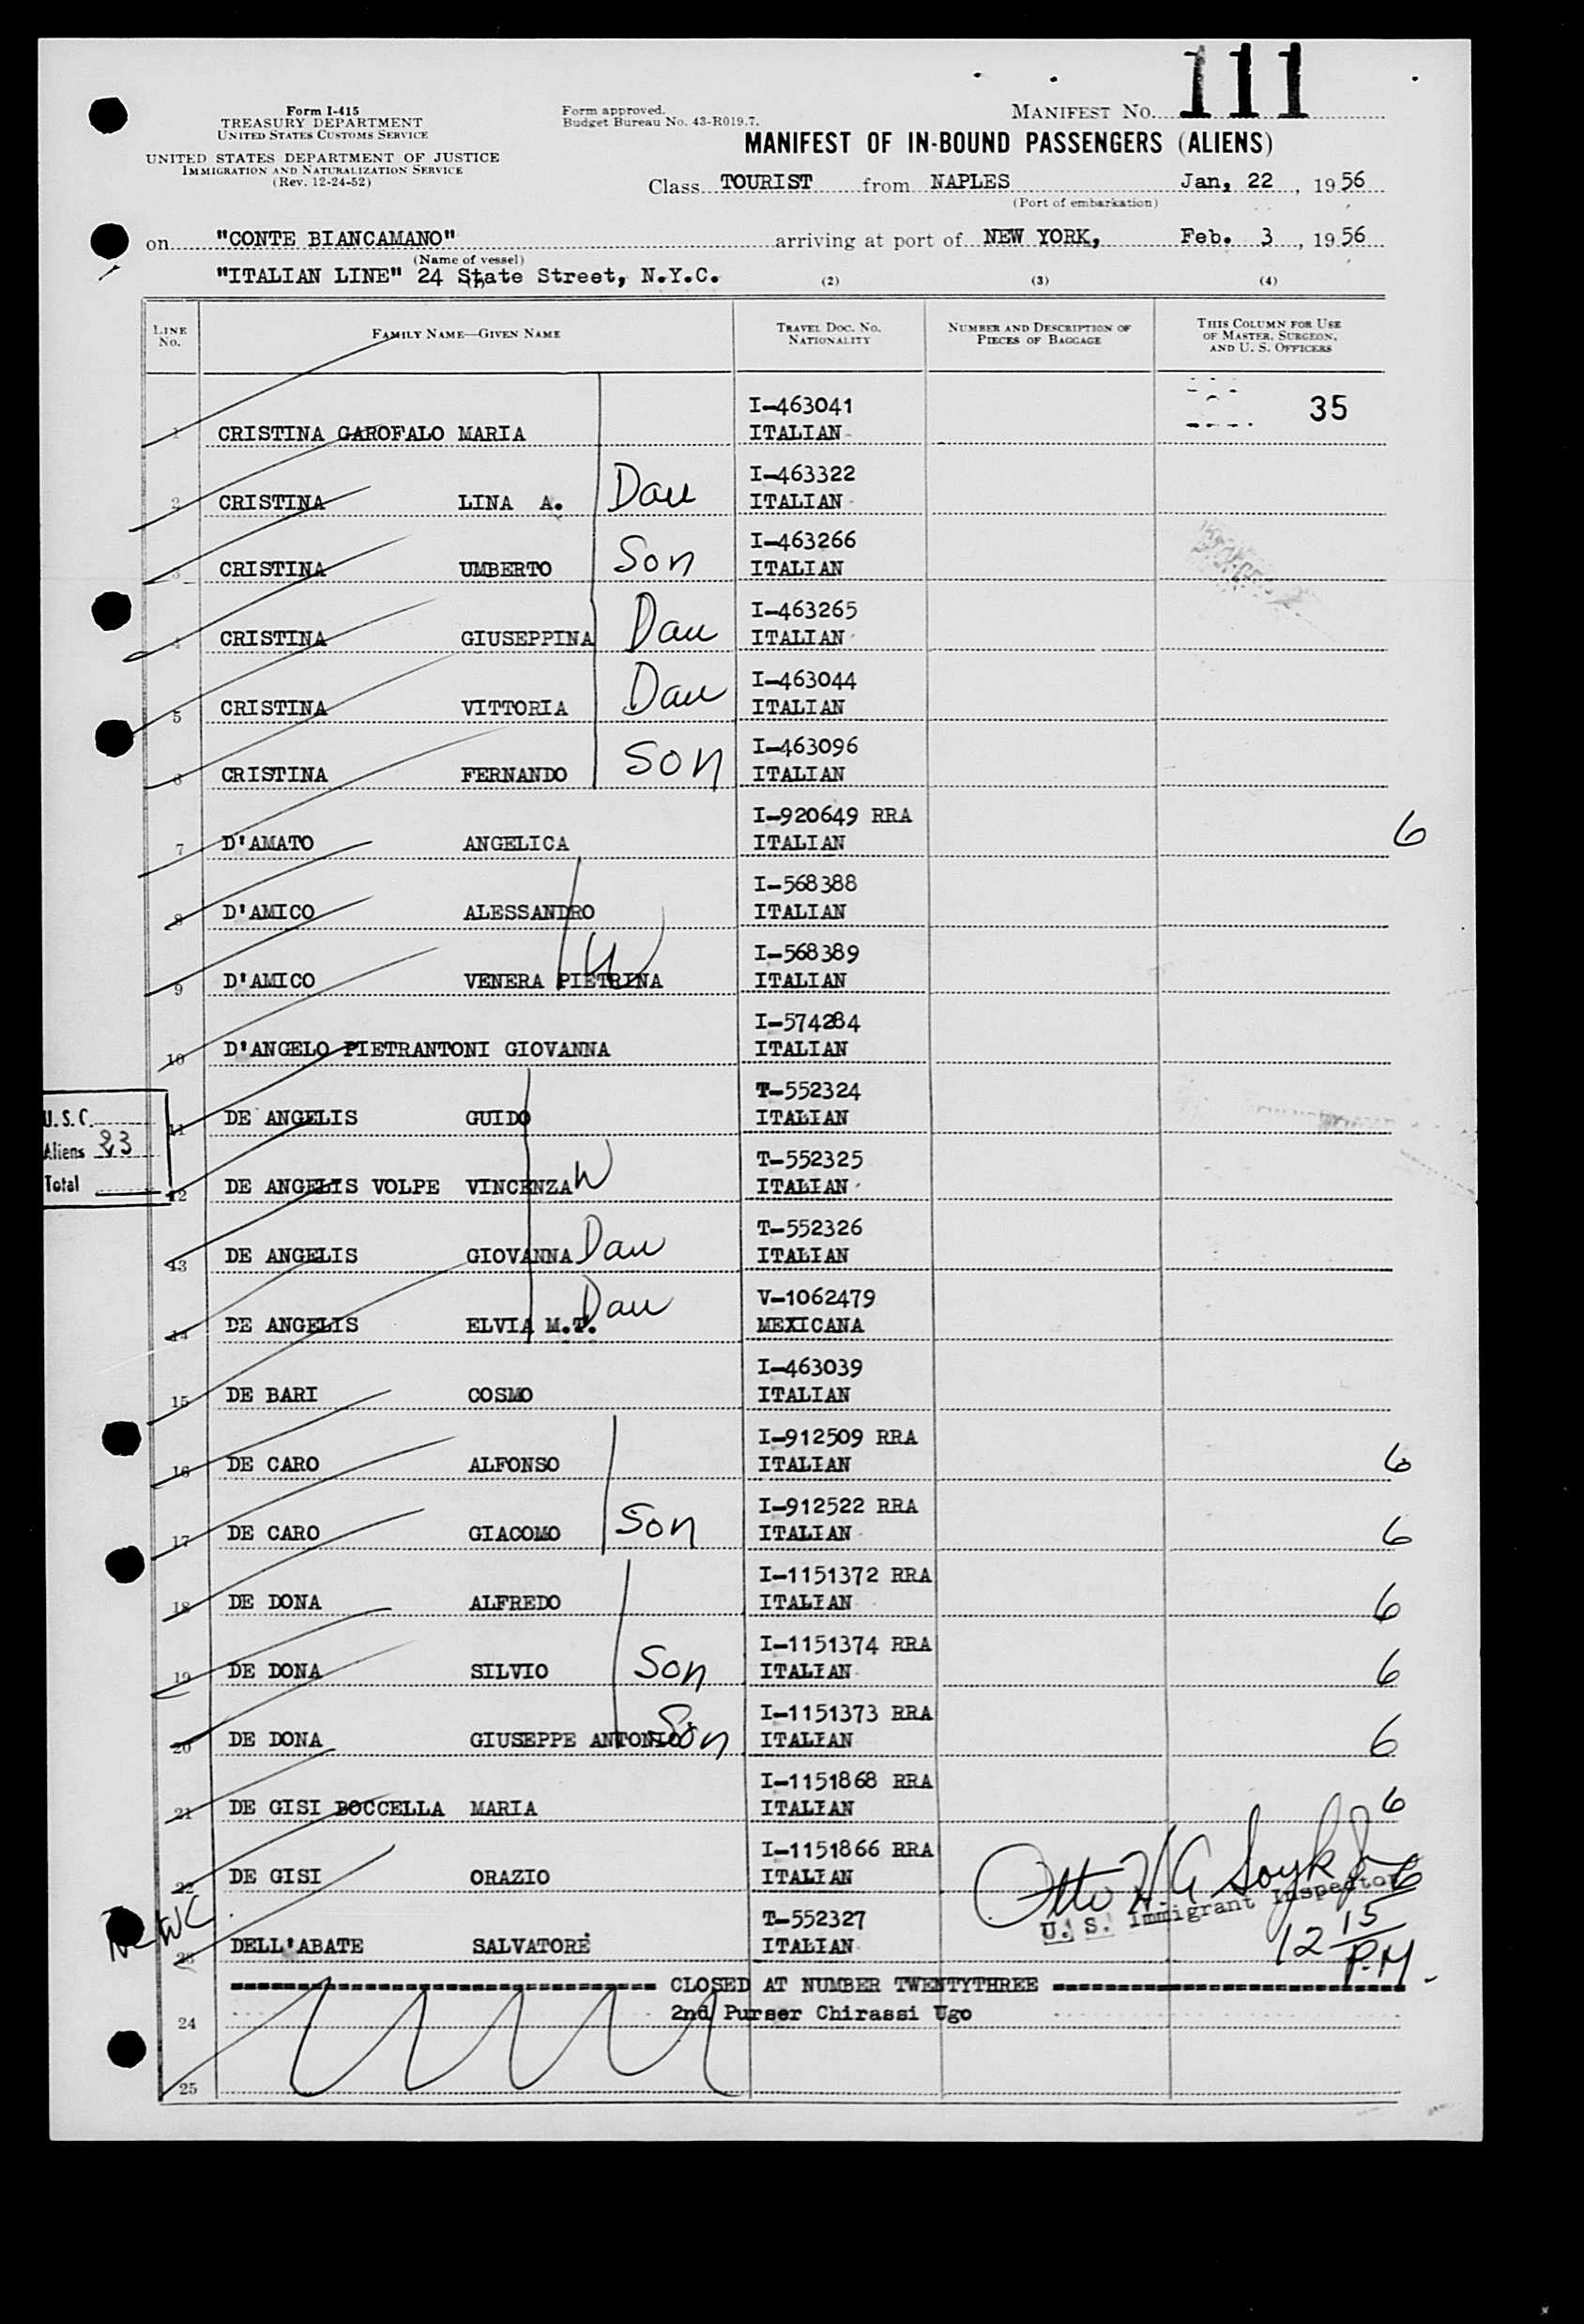 111
Form I-415
TREASURY DEPARTMENT
UNITED STATES CUSTOMS SERVICE
UNITED STATES DEPARTMENT OF JUSTICE
IMMIGRATION AND NATURALIZATION SERVICE
(Rev. 12-24-52)
Form approved.
Budget Bureau No. 43-R019.7.
MANIFEST NO.
MANIFEST OF IN-BOUND PASSENGERS (ALIENS)
Class TOURIST from NAPLES Jan, 22, 1956
(Port of embarkation)
on "CONTE BIANCAMANO" arriving at port of NEW YORK, Feb. 3, 1956
(Name of vessel)
"ITALIAN LINE" 24 State Street, N.Y.C.
(2) (3) (4)
LINE No. FAMILY NAME—GIVEN NAME TRAVEL DOC. NO. NATIONALITY NUMBER AND DESCRIPTION OF PIECES OF BAGGAGE THIS COLUMN FOR USE OF MASTER, SURGEON, AND U. S. OFFICERS
I-463041 35
1 CRISTINA GAROFALO MARIA ITALIAN
I-463322
2 CRISTINA LINA A. Dau ITALIAN
I-463266
3 CRISTINA UMBERTO Son ITALIAN
I-463265
4 CRISTINA GIUSEPPINA Dau ITALIAN
I-463044
5 CRISTINA VITTORIA Dau ITALIAN
I-463096
6 CRISTINA FERNANDO Son ITALIAN
I-920649 RRA
7 D'AMATO ANGELICA ITALIAN 6
I-568388
8 D'AMICO ALESSANDRO ITALIAN
I-568389
9 D'AMICO VENERA PIETRINA W ITALIAN
I-574284
10 D'ANGELO PIETRANTONI GIOVANNA ITALIAN
T-552324
11 DE ANGELIS GUIDO ITALIAN
U.S.C.
Aliens 23
Total
T-552325
12 DE ANGELIS VOLPE VINCENZA W ITALIAN
T-552326
13 DE ANGELIS GIOVANNA Dau ITALIAN
V-1062479
14 DE ANGELIS ELVIA M.T. Dau MEXICANA
I-463039
15 DE BARI COSMO ITALIAN
I-912509 RRA
16 DE CARO ALFONSO ITALIAN 6
I-912522 RRA
17 DE CARO GIACOMO Son ITALIAN 6
I-1151372 RRA
18 DE DONA ALFREDO ITALIAN 6
I-1151374 RRA
19 DE DONA SILVIO Son ITALIAN 6
I-1151373 RRA
20 DE DONA GIUSEPPE ANTONIO Son ITALIAN 6
I-1151868 RRA
21 DE GISI BOCCELLA MARIA ITALIAN 6
I-1151866 RRA
22 DE GISI ORAZIO ITALIAN 6
U. S. Immigrant Inspector
T-552327
23 DELL'ABATE SALVATORE ITALIAN
12 15 P.M.
CLOSED AT NUMBER TWENTYTHREE
2nd Purser Chirassi Ugo
24
25